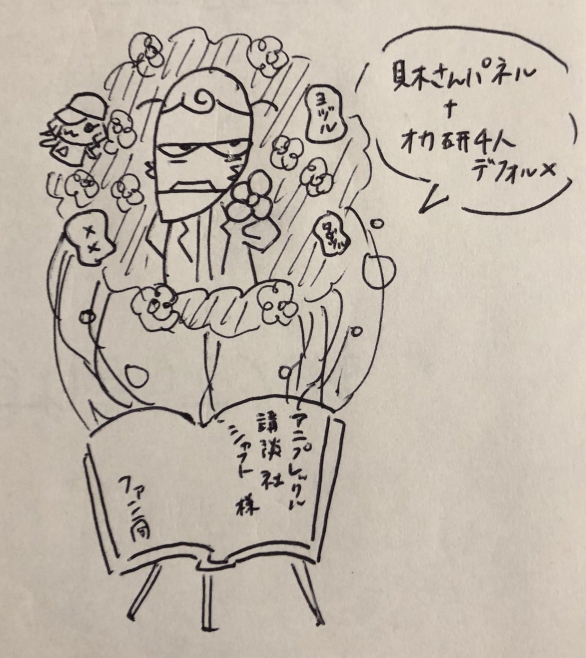 貝木さんパネル
+
オカ研4人
デフォルメ
ヨヅル
アニプレックス
講談社
シャフト 様
ファン一同